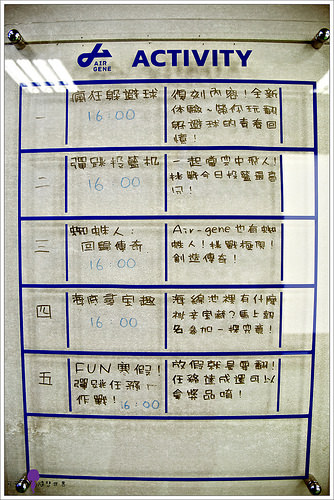 AIR GENE
ACTIVITY
一
瘋狂躲避球
16:00
復刻內容!全新
體驗~帶你玩翻
躲避球的青春回
憶!
二
彈跳投籃机
16:00
一起噴空中飛人!
挑戰今日投籃最高
三
蜘蛛人:
回歸傳奇
16:00
Air-gene也有蜘
蛛人!挑戰極限!
創造傳奇!
四
海底尋宝趣
16:00
海綿池裡有什麼
秘密宝藏?馬上報
名參加一探究竟!
五
FUN寒假!
彈跳任務~
作戰!16:00
放假就是要翻!
任務達成還可以
拿獎品唷!